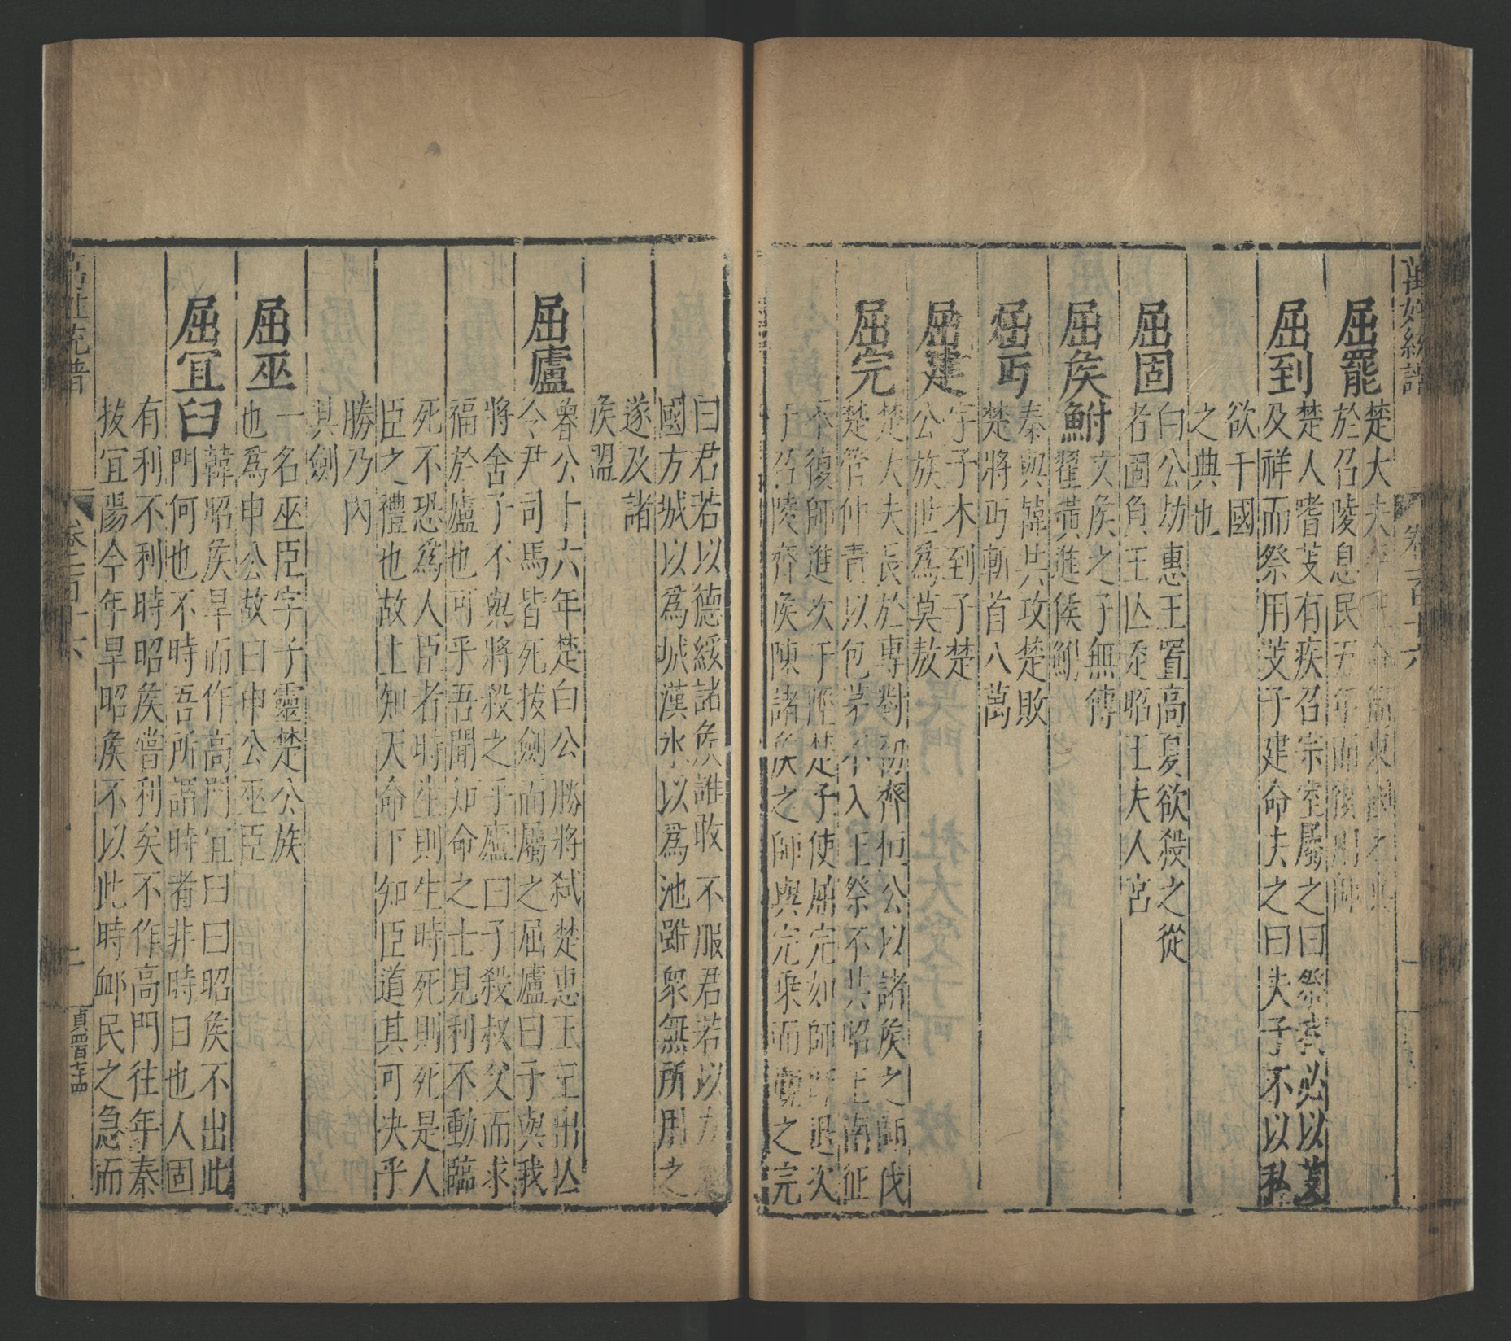 萬姓統譜 卷一百十六
屈罷 楚大夫 簡東國之兵
於召陵息民五年而後用師
屈到 楚人嗜芰有疾召宗室屬之曰祭我必以芰
及祥而祭用芰子建命去之曰夫子不以私
欲干國
之典也
屈固 白公劫惠王置高夏欲殺之從
者圉負王亾走昭王夫人宮
屈矦鮒 文矦之子無傅
翟黃進侯鮒
屈丐 秦與韓共攻楚敗
楚將丐斬首八萬
屈建 字子木到子楚
公族世爲莫敖
屈完 楚大夫長於專對初齊桓公以諸矦之師伐
楚管仲責以包茅不入王祭不共昭王南征
不復師進次于陘楚子使屈完如師師退次
于召陵齊矦陳諸矦之師與完乗而觀之完
曰君若以德綏諸矦誰敢不服君若以力
國方城以爲城漢水以爲池雖衆無所用之
遂及諸
矦盟
屈廬 魯公十六年楚白公勝將弒楚惠王王出亾
令尹司馬皆死拔劍而屬之屈廬曰子與我
將舍子不與將殺之子廬曰子殺叔父而求
福於廬也可乎吾聞知命之士見利不動臨
死不恐爲人臣者時生則生時死則死是人
臣之禮也故上知天命下知臣道其可决乎
勝乃內
其劍
屈巫 一名巫臣字子靈楚公族
也爲申公故曰申公巫臣
屈宜臼 韓昭矦旱而作高門宜曰曰昭矦不出此
門何也不時吾所謂時者非時日也人固
有利不利時昭矦嘗利矣不作高門往年秦
拔宜陽今年旱昭矦不以此時卹民之急而
萬姓統譜 卷一百十六 二 貞四百七十四